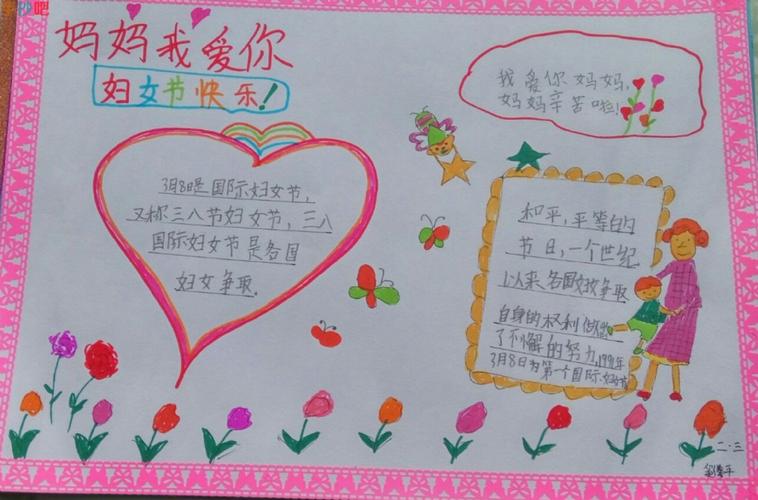 妈妈我爱你
妇女节快乐!
我爱你妈妈,
妈妈辛苦啦!
3月8日是国际妇女节,
又称三八节妇女节,三八
国际妇女节是各国
妇女争取
和平,平等的
节日,一个世纪
以来各国妇女争取
自身的权利做
了不懈的努力,
3月8日为第一个国际妇女节
二·三